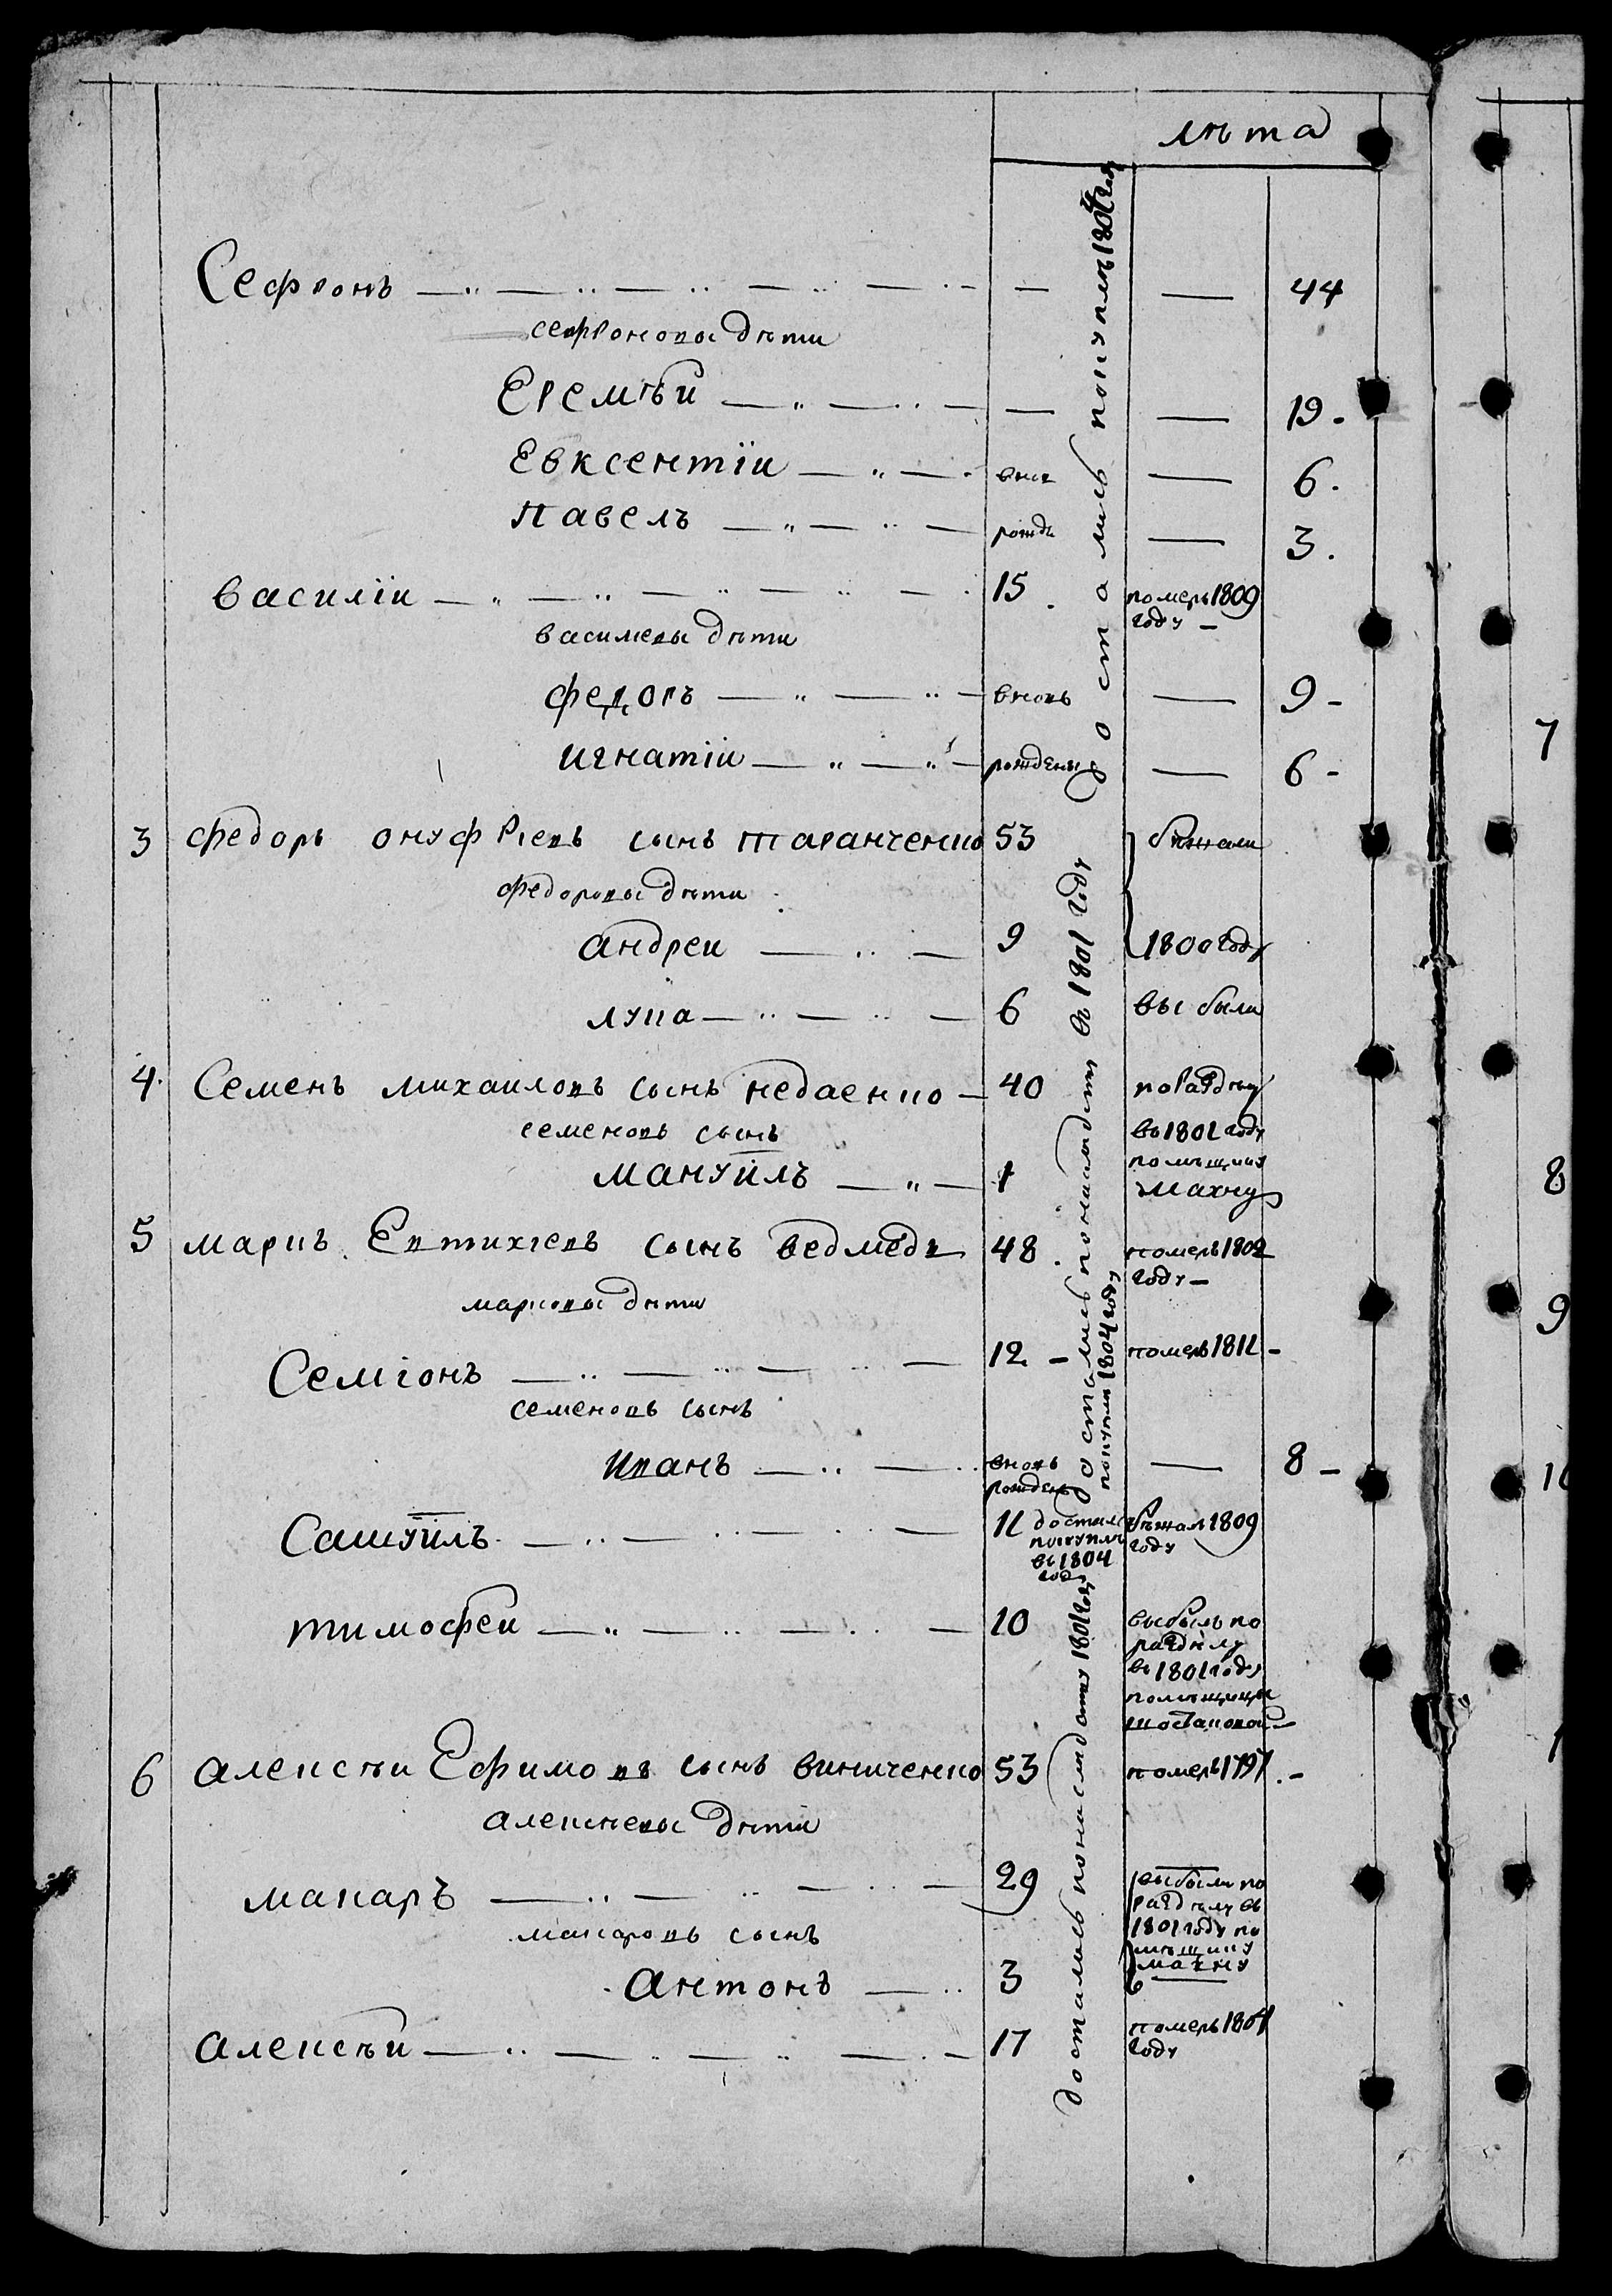 лѣта
Сефронъ — — 44
сефроновы дѣти
Еремѣи — — 19
Евксентіи вновь — 6
Павелъ рожде — 3
Василіи 15 померъ 1809 году
василіевы дѣти
Федоръ вновь — 9
Игнатіи рождены — 6
достались покупкѣ 1804 году
3 Федоръ онуфріевъ сынъ Таранченко 53 бѣжали
федоровы дѣти
Андреи 9 1800 году
Лука 6 выбыли
4 Семенъ михаиловъ сынъ недаенко 40 по раздѣлу
семеновъ сынъ въ 1801 году
Мануилъ 1 помѣщику
Махну
5 Маркъ Евтихіевъ сынъ ведмедь 48 померъ 1802 году
марковы дѣти
Семіонъ 12 померъ 1811
семеновъ сынъ
Иванъ вновь рожденъ — 8
Самуилъ 11 достался покупкѣ въ 1804 году бѣжалъ 1809 году
Тимофеи 10 выбылъ по раздѣлу въ 1801 году помѣщице
достались по наслѣдству въ 1801 году
покупки 1804 году
6 Алексѣи Ефимовъ сынъ виниченко 53 померъ 1797
алексѣевы дѣти
Макаръ 29 выбыли по раздѣлу въ 1801 году помѣщику Махну
макаровъ сынъ
Антонъ 3
Алексѣи 17 померъ 1804 году
достались по наслѣдству 1801 году
7
8
9